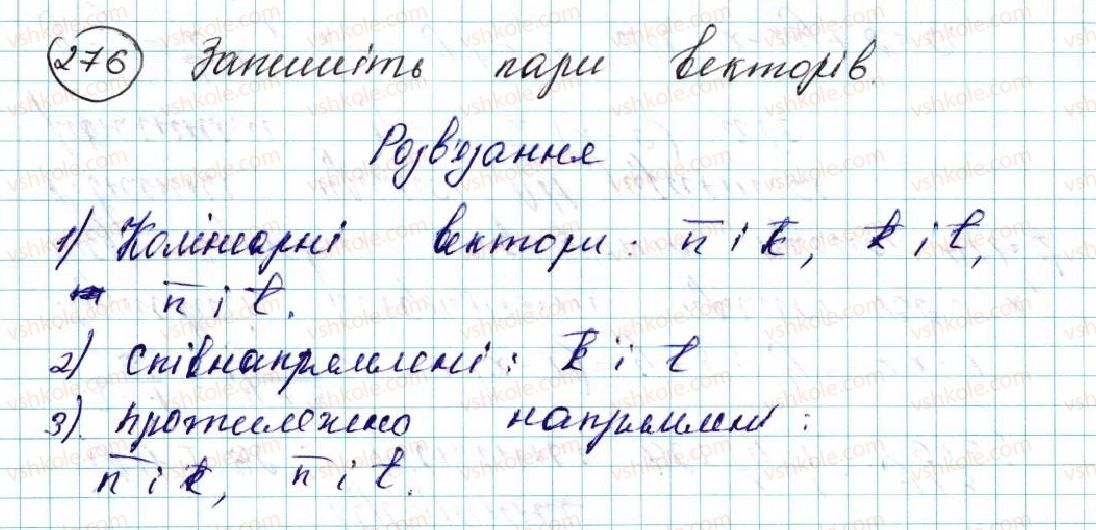 276 Запишіть пари векторів.
Розв'язання
1) Колінеарні вектори: n̅ і k̅, k̅ і t̅,
n̅ і t̅.
2) Співнапрямлені: k̅ і t̅
3) Протилежно напрямлені:
n̅ і k̅, n̅ і t̅.